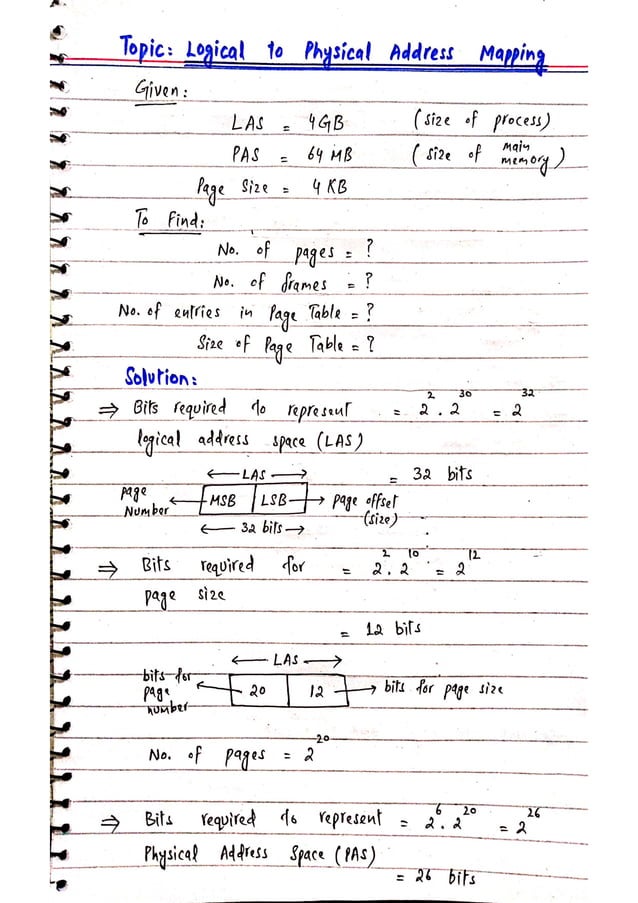 Topic: Logical to Physical Address Mapping
Given:
LAS = 4GB (size of process)
PAS = 64 MB (size of main memory)
Page Size = 4 KB
To Find:
No. of pages = ?
No. of frames = ?
No. of entries in Page Table = ?
Size of Page Table = ?
Solution:
⇒ Bits required to represent = 2². 2³⁰ = 2³²
logical address space (LAS)
= 32 bits
← LAS →
page Number ← MSB | LSB → page offset (size)
← 32 bits →
⇒ Bits required for = 2². 2¹⁰ = 2¹²
page size
= 12 bits
← LAS →
bits for page number ← 20 | 12 → bits for page size
No. of pages = 2²⁰
⇒ Bits required to represent = 2⁶. 2²⁰ = 2²⁶
Physical Address Space (PAS)
= 26 bits